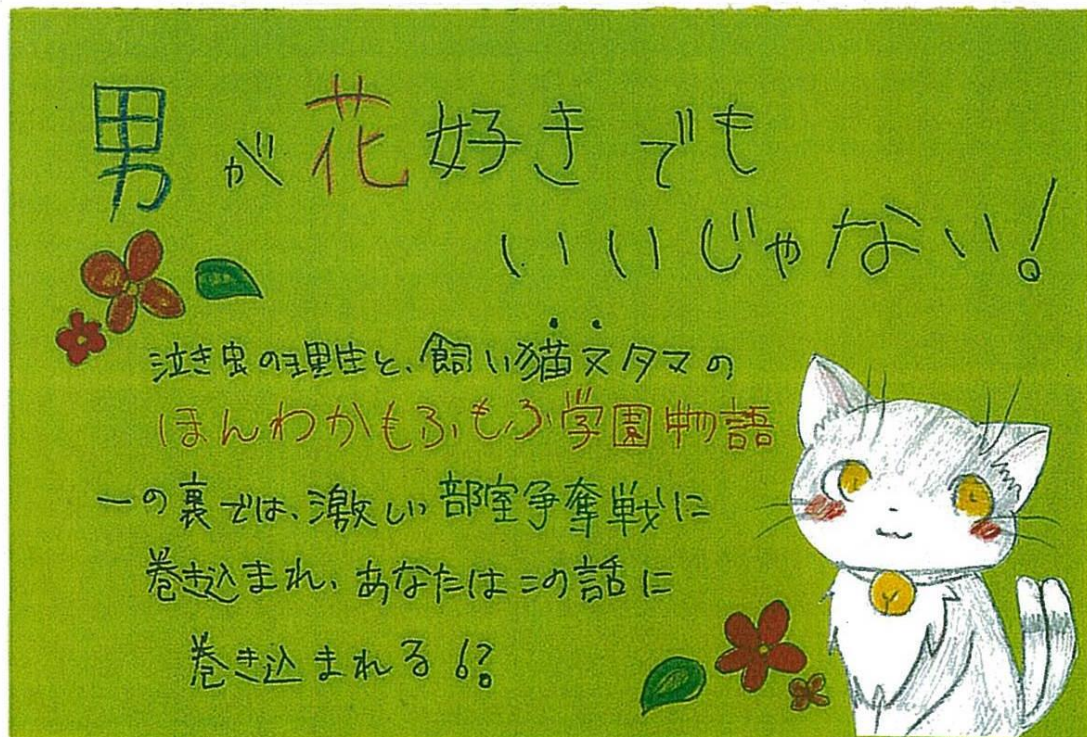 男が花好きでも
いいじゃない!
泣き虫の理生と、飼い猫又タマの
ほんわかもふもふ学園物語
ーの裏では、激しい部室争奪戦に
巻き込まれ、あなたはこの話に
巻き込まれる!?